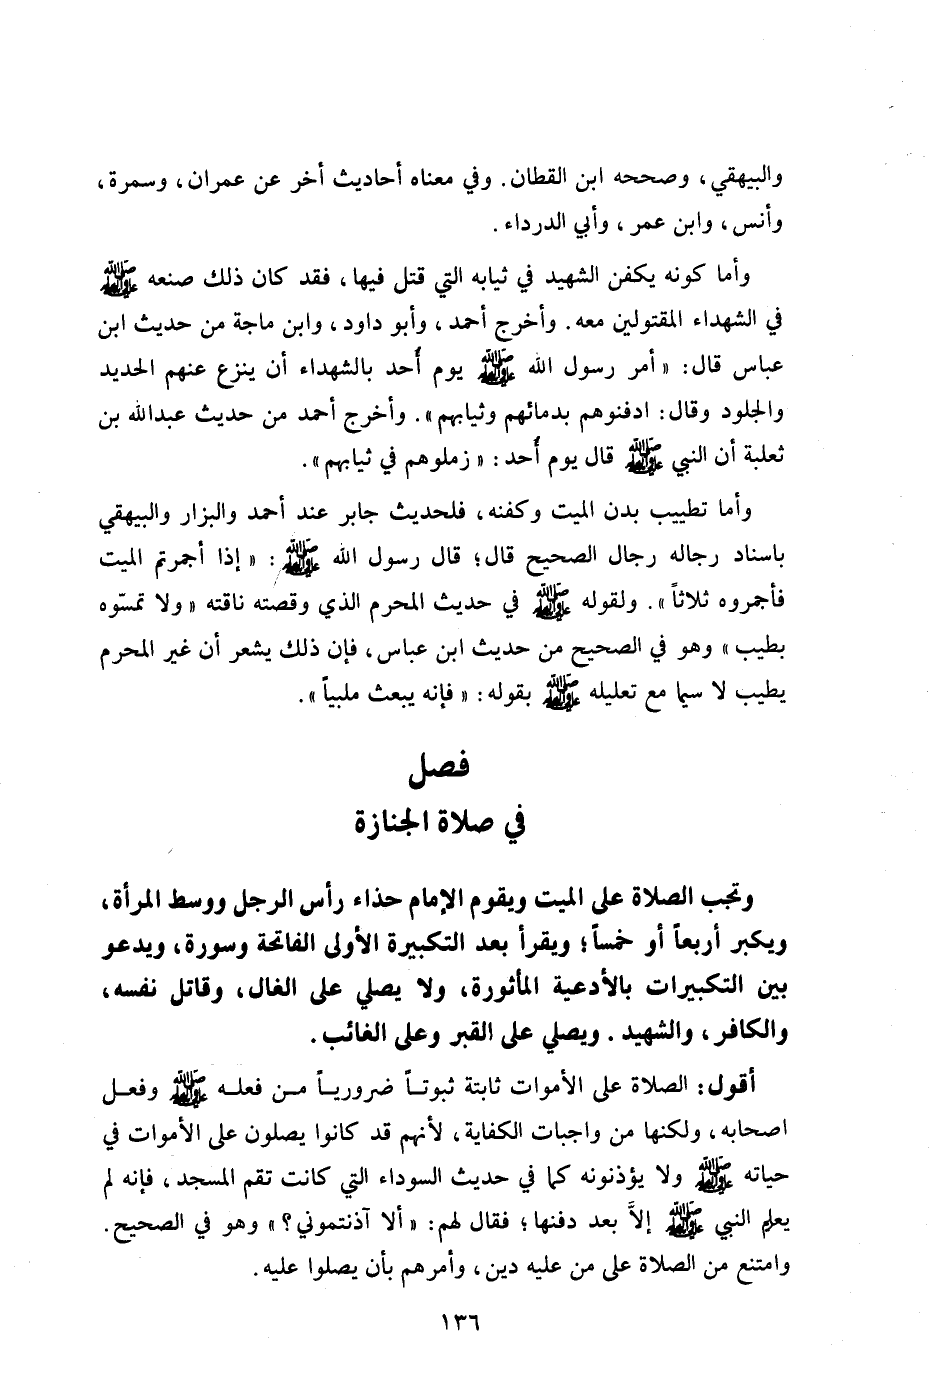 والبيهقي، وصححه ابن القطان. وفي معناه أحاديث أخر عن عمران، وسمرة،
وأنس، وابن عمر، وأبي الدرداء.
وأما كونه يكفن الشهيد في ثيابه التي قتل فيها، فقد كان ذلك صنعه ﷺ
في الشهداء المقتولين معه. وأخرج أحمد، وأبو داود، وابن ماجة من حديث ابن
عباس قال: «أمر رسول الله ﷺ يوم أُحد بالشهداء أن ينزع عنهم الحديد
والجلود وقال: ادفنوهم بدمائهم وثيابهم». وأخرج أحمد من حديث عبدالله بن
ثعلبة أن النبي ﷺ قال يوم أُحد: «زملوهم في ثيابهم».
وأما تطييب بدن الميت وكفنه، فلحديث جابر عند أحمد والبزار والبيهقي
باسناد رجاله رجال الصحيح قال؛ قال رسول الله ﷺ: «إذا أجمرتم الميت
فأجمروه ثلاثاً». ولقوله ﷺ في حديث المحرم الذي وقصته ناقته «ولا تمسّوه
بطيب» وهو في الصحيح من حديث ابن عباس، فإن ذلك يشعر أن غير المحرم
يطيب لا سيما مع تعليله ﷺ بقوله: «فإنه يبعث ملبياً».
فصل
في صلاة الجنازة
وتجب الصلاة على الميت ويقوم الإمام حذاء رأس الرجل ووسط المرأة،
ويكبر أربعاً أو خمساً؛ ويقرأ بعد التكبيرة الأولى الفاتحة وسورة، ويدعو
بين التكبيرات بالأدعية المأثورة، ولا يصلي على الغال، وقاتل نفسه،
والكافر، والشهيد. ويصلي على القبر وعلى الغائب.
أقول: الصلاة على الأموات ثابتة ثبوتاً ضرورياً من فعله ﷺ وفعل
اصحابه، ولكنها من واجبات الكفاية، لأنهم قد كانوا يصلون على الأموات في
حياته ﷺ ولا يؤذنونه كما في حديث السوداء التي كانت تقم المسجد، فإنه لم
يعلم النبي ﷺ إلاَّ بعد دفنها؛ فقال لهم: «ألا آذنتموني؟» وهو في الصحيح.
وامتنع من الصلاة على من عليه دين، وأمرهم بأن يصلوا عليه.
١٣٦